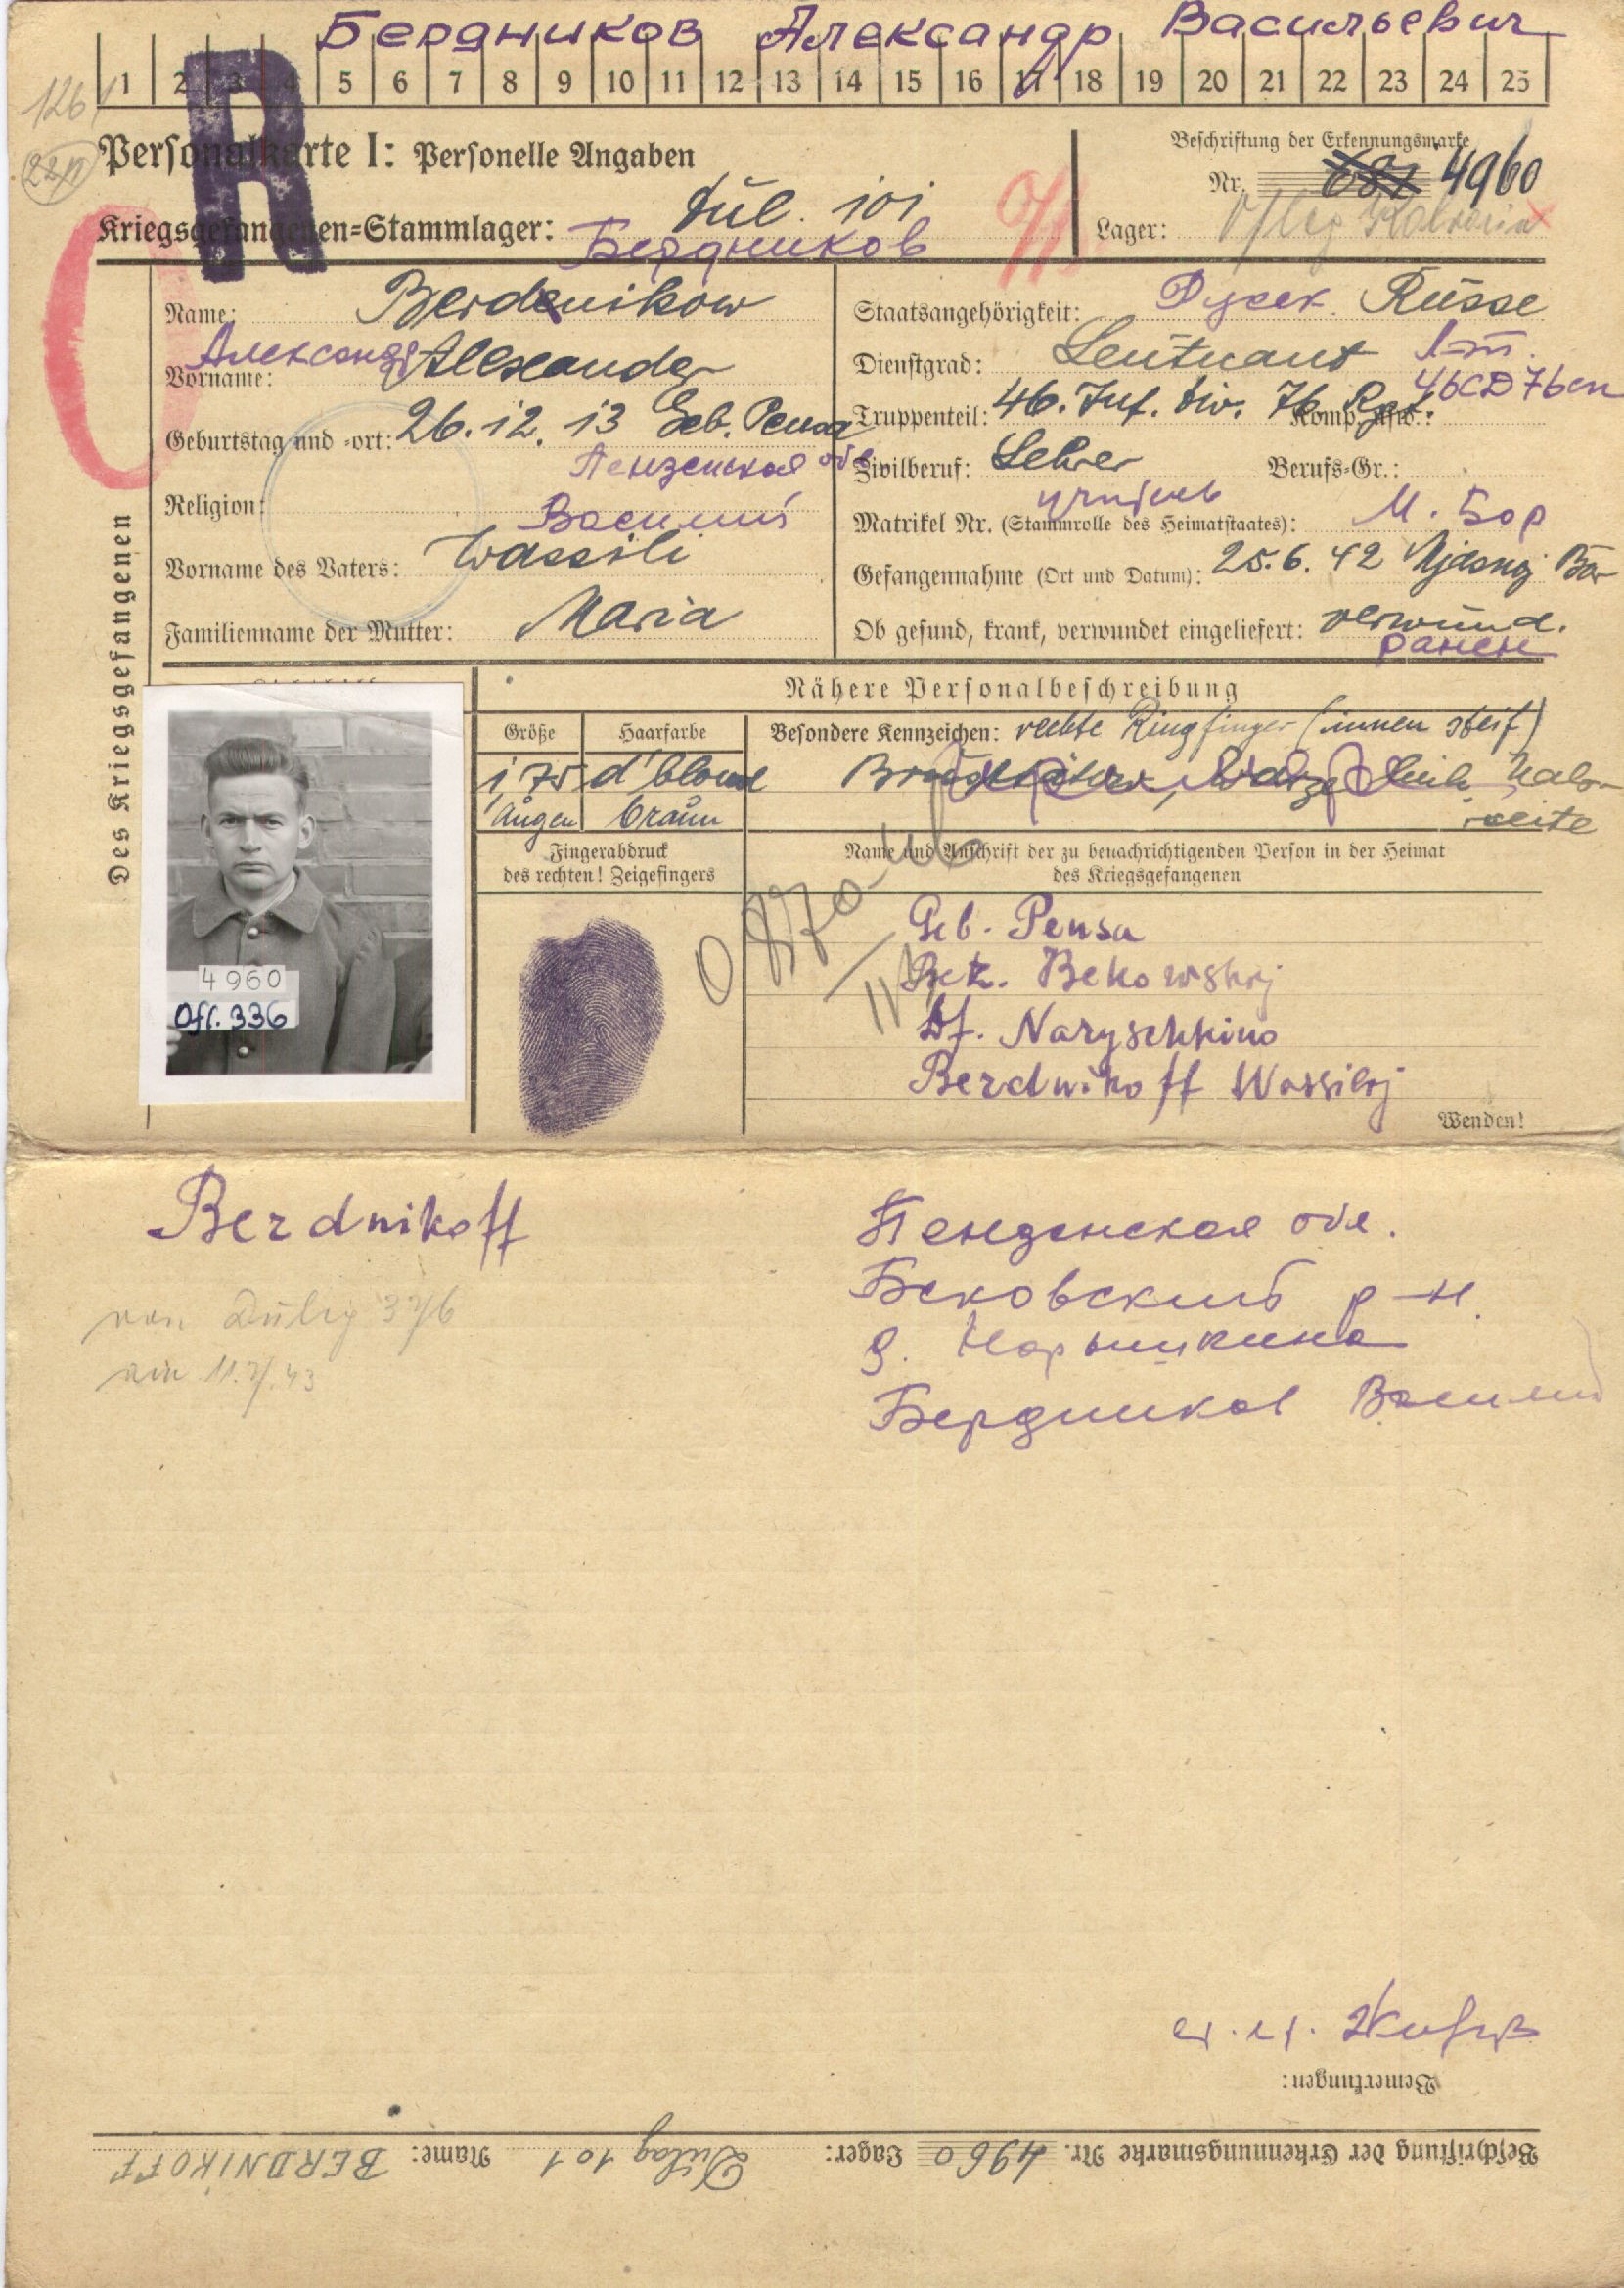 Бердников Александр Васильевич
1 2 3 4 5 6 7 8 9 10 11 12 13 14 15 16 17 18 19 20 21 22 23 24 25
126
R
Personalkarte I: Personelle Angaben
Beschriftung der Erkennungsmarke
Nr. 4960
Kriegsgefangenen=Stammlager: Dul. 101
Бердников
Lager: Oflag Kalvaria
Des Kriegsgefangenen
Name: Berdenikow
Vorname: Александр Alexander
Geburtstag und =ort: 26.12.13 Geb. Pensa
Пензенская обл
Religion:
Василий
Vorname des Vaters: Wassili
Familienname der Mutter: Maria
Staatsangehörigkeit: Русск. Russe
Dienstgrad: Leutnant Л-т.
Truppenteil: 46. Inf. Div. 76 Rgt. Komp. usw.: 46СД 76сп
Zivilberuf: Lehrer Berufs=Gr.:
учитель
Matrikel Nr. (Stammrolle des Heimatstaates): М. Бор
Gefangennahme (Ort und Datum): 25.6.42 Mjasnoj Bor
Ob gesund, krank, verwundet eingeliefert: verwund.
ранен
Nähere Personalbeschreibung
Größe Haarfarbe
1,75 d'blond
Augen braun
Besondere Kennzeichen: rechte Ringfinger (innen steif)
Warze
seite
Fingerabdruck
des rechten! Zeigefingers
Name und Anschrift der zu benachrichtigenden Person in der Heimat
des Kriegsgefangenen
4960
Ofl. 336
Geb. Pensa
Bez. Bekowskij
Df. Naryschkino
Berdnikoff Wassilij
Wenden!
Berdnikoff
von Dulag 376
am 11.7.43
Пензенская обл.
Бековский р-н
д. Нарышкино
Бердников Василий
Bemerkungen:
Beschriftung der Erkennungsmarke Nr. 4960 Lager: Dulag 101 Name: BERDNIKOFF